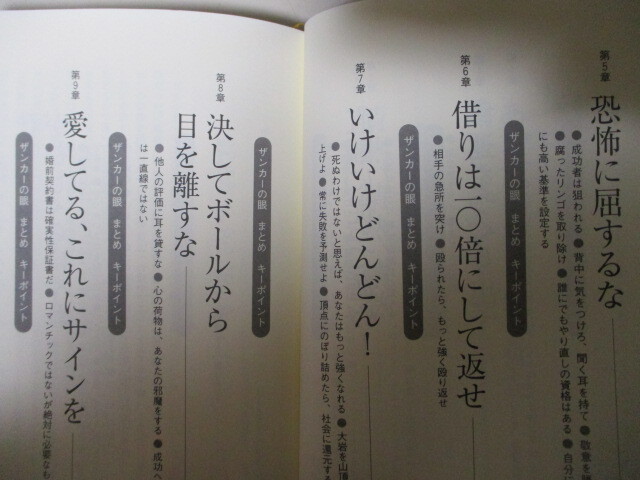 第5章
恐怖に屈するな
●成功者は狙われる ●背中に気をつけろ、聞く耳を持て ●敬意を
●腐ったリンゴを取り除け ●誰にでもやり直しの資格はある ●自分に
にも高い基準を設定する
ザンカーの眼 まとめ キーポイント
第6章
借りは一〇倍にして返せ
●相手の急所を突け ●殴られたら、もっと強く殴り返せ
ザンカーの眼 まとめ キーポイント
第7章
いけいけどんどん!
●死ぬわけではないと思えば、あなたはもっと強くなれる ●大岩を山頂
上げよ ●常に失敗を予測せよ ●頂点にのぼり詰めたら、社会に還元する
ザンカーの眼 まとめ キーポイント
第8章
決してボールから
目を離すな
●他人の評価に耳を貸すな ●心の荷物は、あなたの邪魔をする ●成功へ
は一直線ではない
ザンカーの眼 まとめ キーポイント
第9章
愛してる、これにサインを
●婚前契約書は確実性保証書だ ●ロマンチックではないが絶対に必要なも
ザンカーの眼 まとめ キーポイント